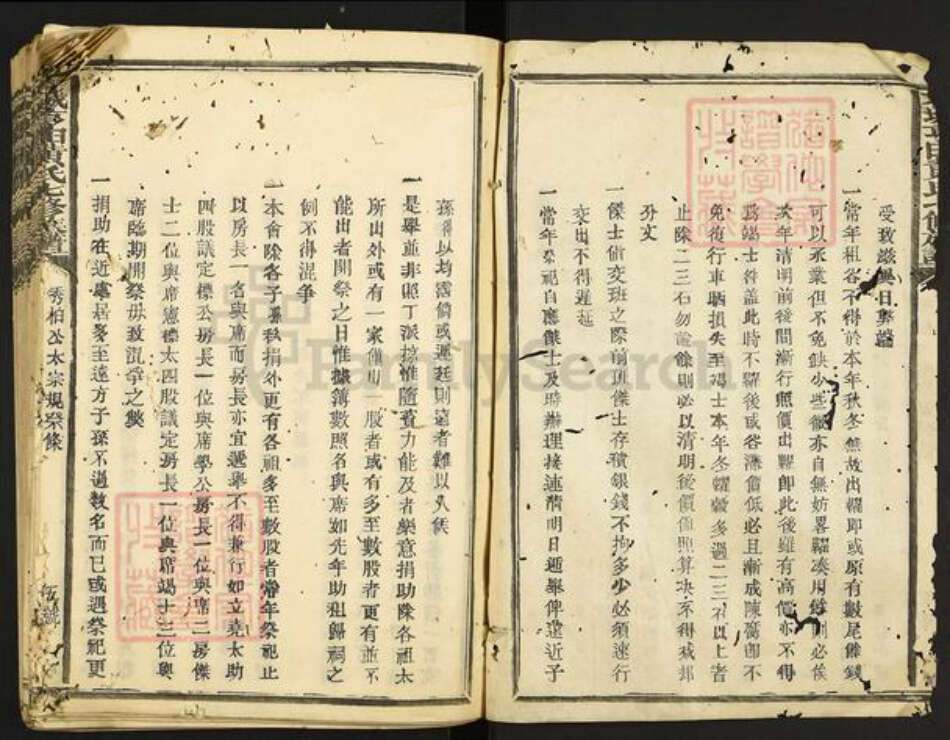 受致滋異日弊竇
一當年租谷不得於本年秋冬無故出糶即或原有數尾餘錢
可以承業但不免缺少些微亦自無妨畧糶湊用餘則必俟
次年清明前後間漸行照價出糶即此後雖有高價亦不得
爲竭士咎蓋此時不糶後或谷漸價低必且漸成陳腐即不
免復行車晒損失至竭士本年冬糶穀多過二三石以上者
止除二三石勿論餘則必以清明後價值照算決不得減那
分文
一傑士値交班之際前班傑士存積銀錢不拘多少必須速行
交出不得遲延
一當年祭祀自應傑士及時辦理接連清明日遞舉俾遠近子
孫得以均霑倘或遲延則遠者難以久候
一是舉並非照丁派捻惟隨賓力能及者樂意捐助除各祖太
所出外或有一家僅可一股者或有多至數股者更有並不
能出者開祭之日惟據簿數照名與席如先年助租歸祠之
例不得混爭
一本會除各子孫私捐外更有各祖多至數股者當年祭祀止
以房長一名與席而房長亦宜遞舉不得兼行如立堯太助
四股議定標公房長一位與席學公房長一位與席二房傑
士二位與席憲標太四股議定房長一位與席竭士三位與
席臨期開祭毋致混爭之弊
一捐助在近處居多至遠方子孫不過數名而已或遇祭祀更
秀柏公太宗規祭條
FamilySearch